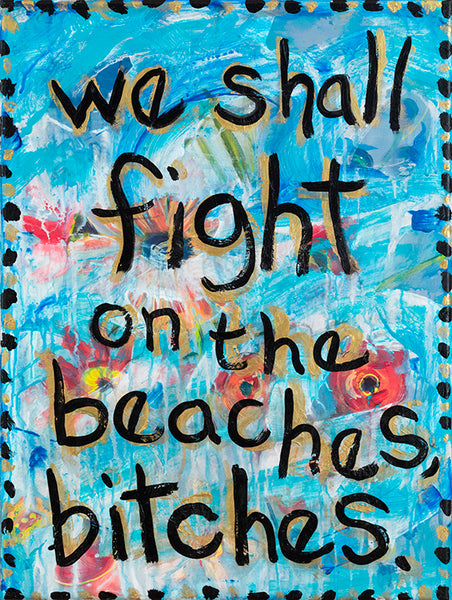 we shall
fight
on the
beaches,
bitches.